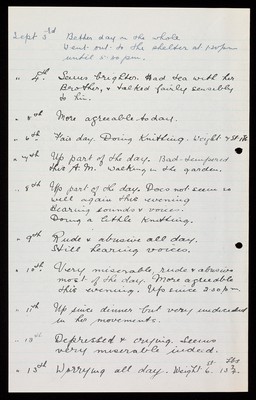 Sept 3rd Better day on the whole
Went out to the shelter at 1.30pm
until 5.30pm.
" Seems brighter. Had tea with her
Brother, & talked fairly sensibly
to him.
" More agreeable to day.
" 6th Fair day. Doing Knitting. Weight 7 St
" 7th Up part of the day. Bad-tempered
this A.M. Walking in the garden.
" 8th Up part of the day. Does not seem so
well again this evening
Hearing sounds & voices.
Doing a little Knitting.
" 9th Rude & abusive all day.
Still hearing voices.
" 10th Very miserable, rude & abusive
most of the day. More agreeable
this evening. Up since 2.30pm.
" 11th Up since dinner but very undecided
in her movements.
" 12th Depressed & crying. Seems
very miserable indeed.
" 13th Worrying all day. Weight 6st 13½ lbs